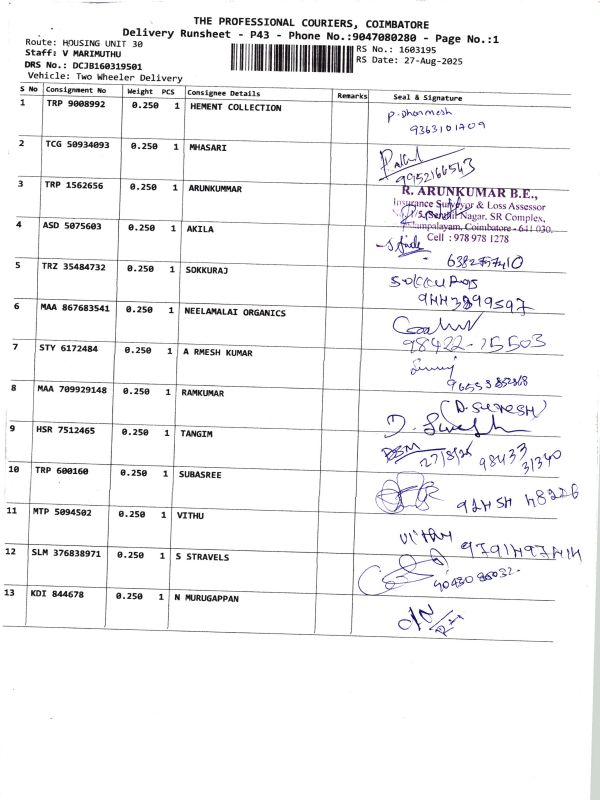 THE PROFESSIONAL COURIERS, COIMBATORE
Delivery Runsheet - P43 - Phone No.:9047080280 - Page No.:1
Route: HOUSING UNIT 30
Staff: V MARIMUTHU
DRS No.: DCJB160319501
Vehicle: Two Wheeler Delivery
RS No.: 1603195
RS Date: 27-Aug-2025
S No Consignment No Weight PCS Consignee Details Remarks Seal & Signature
1 TRP 9008992 0.250 1 HEMENT COLLECTION P. Dharmesh
9363101709
2 TCG 50934093 0.250 1 MHASARI
9952166543
3 TRP 1562656 0.250 1 ARUNKUMMAR R. ARUNKUMAR B.E.,
Insurance Surveyor & Loss Assessor
Nagar, SR Complex,
Coimbatore - 641 030.
Cell : 978 978 1278
4 ASD 5075603 0.250 1 AKILA
6382757410
5 TRZ 35484732 0.250 1 SOKKURAJ
9443899597
6 MAA 867683541 0.250 1 NEELAMALAI ORGANICS
98422-25503
7 STY 6172484 0.250 1 A RMESH KUMAR
8 MAA 709929148 0.250 1 RAMKUMAR (D. SURESH)
D. Suresh
9 HSR 7512465 0.250 1 TANGIM
27/8/25 98433
31340
10 TRP 600160 0.250 1 SUBASREE
11 MTP 5094502 0.250 1 VITHU Vithu
9791497414
12 SLM 376838971 0.250 1 S STRAVELS
13 KDI 844678 0.250 1 N MURUGAPPAN